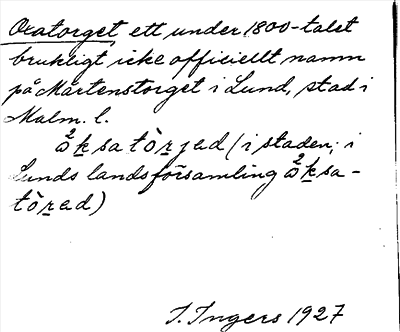 Oxatorget, ett under 1800-talet
brukligt icke officiellt namn
på Mårtenstorget i Lund, stad i
Malm. l.
ω̊²k̲satòr̲jad (i staden; i
Lunds landsförsamling ω̊²k̲sa-
tòr̲ad)
I. Ingers 1927